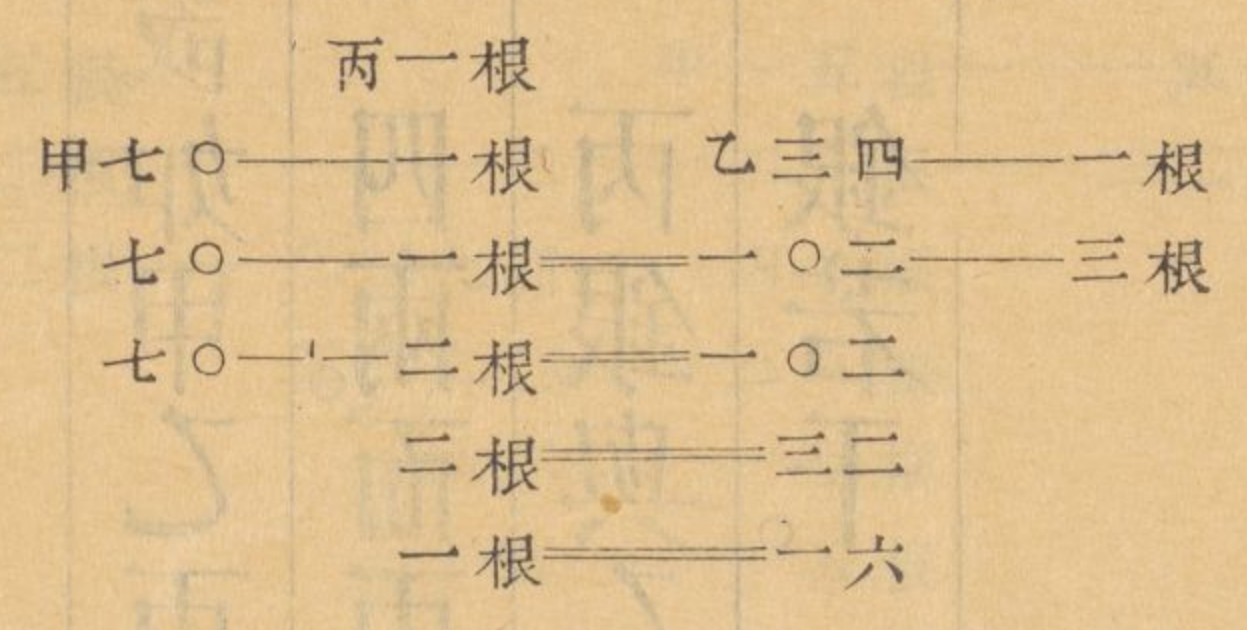 丙一根
甲七〇—一根　乙三四—一根
七〇—一根＝一〇二—三根
七〇—ı—二根＝一〇二
二根＝三二
一根＝一六